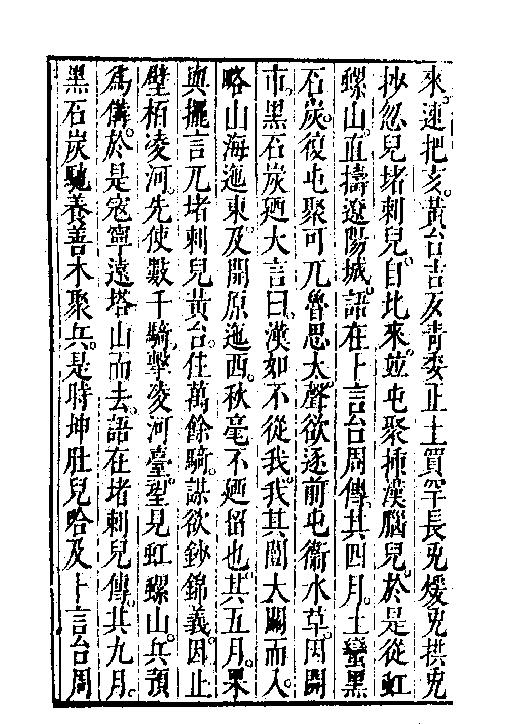 來。速把亥。黃台吉及靑委止土買罕長兎煖兎拱兎
抄忽兒堵剌兒。自北來。竝屯聚揷漢腦兒。於是從虹
螺山。直擣遼陽城。語在卜言台周傳。其四月。土蠻黑
石炭。復屯聚可兀魯思太。聲欲逐前屯衞水草。因開
市。黑石炭廼大言曰。漢如不從我。我其闖大關而入。
略山海迤東。及開原迤西。秋毫不廼招也。其五月。果
與擺言兀堵剌兒黃台。住萬餘騎。謀欲鈔錦義。因止
壁栢凌河。先使數千騎。擊凌河臺。望見虹螺山。兵預
爲備。於是寇寧遠塔山而去。語在堵剌兒傳。其九月。
黑石炭馳養善木聚兵。是時坤肚兒哈及卜言台周